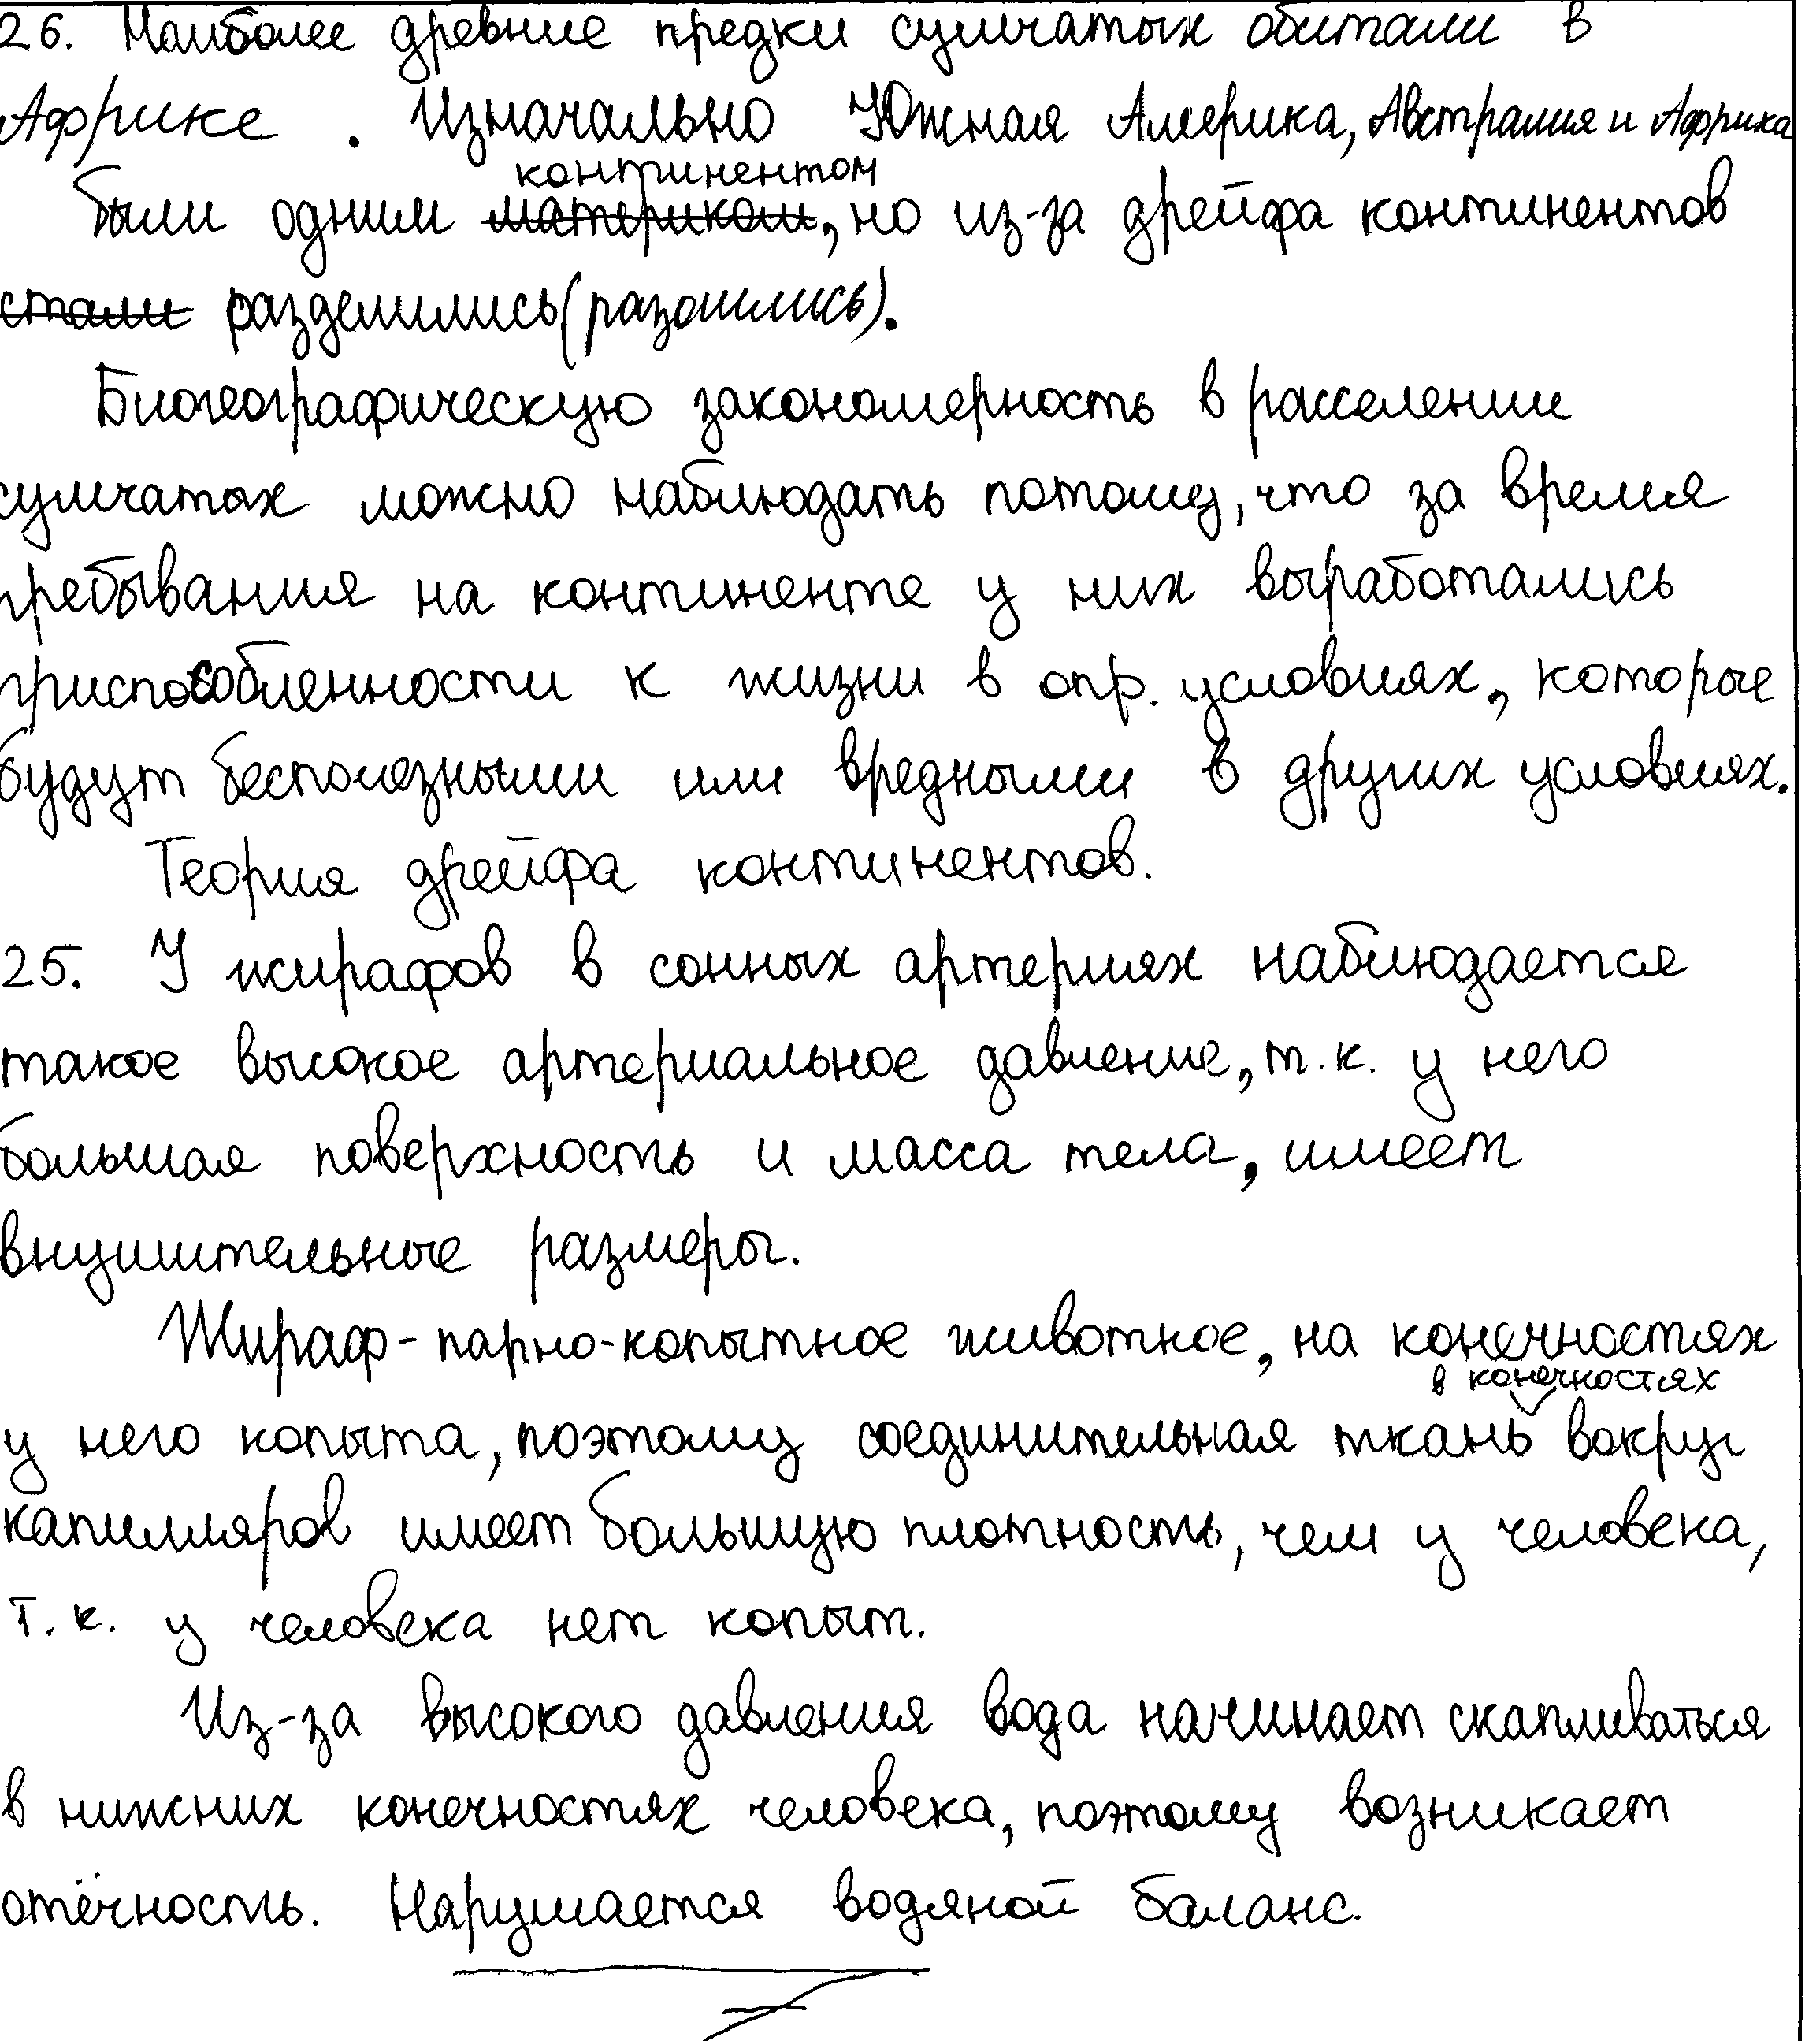 26. Наиболее древние предки сумчатых обитали в
Африке . Изначально Южная Америка, Австралия и Африка
континентом
были одним материком, но из-за дрейфа континентов
стали разделились (разошлись).
Биогеографическую закономерность в расселении
сумчатых можно наблюдать потому, что за время
пребывания на континенте у них выработались
приспособленности к жизни в опр. условиях, которые
будут бесполезными или вредными в других условиях.
Теория дрейфа континентов.
25. У жирафов в сонных артериях наблюдается
такое высокое артериальное давление, т.к. у него
большая поверхность и масса тела, имеет
внушительные размеры.
Жираф - парно-копытное животное, на конечностях
в конечностях
у него копыта, поэтому соединительная ткань вокруг
капилляров имеет большую плотность, чем у человека,
т.к. у человека нет копыт.
Из-за высокого давления вода начинает скапливаться
в нижних конечностях человека, поэтому возникает
отёчность. Нарушается водяной баланс.